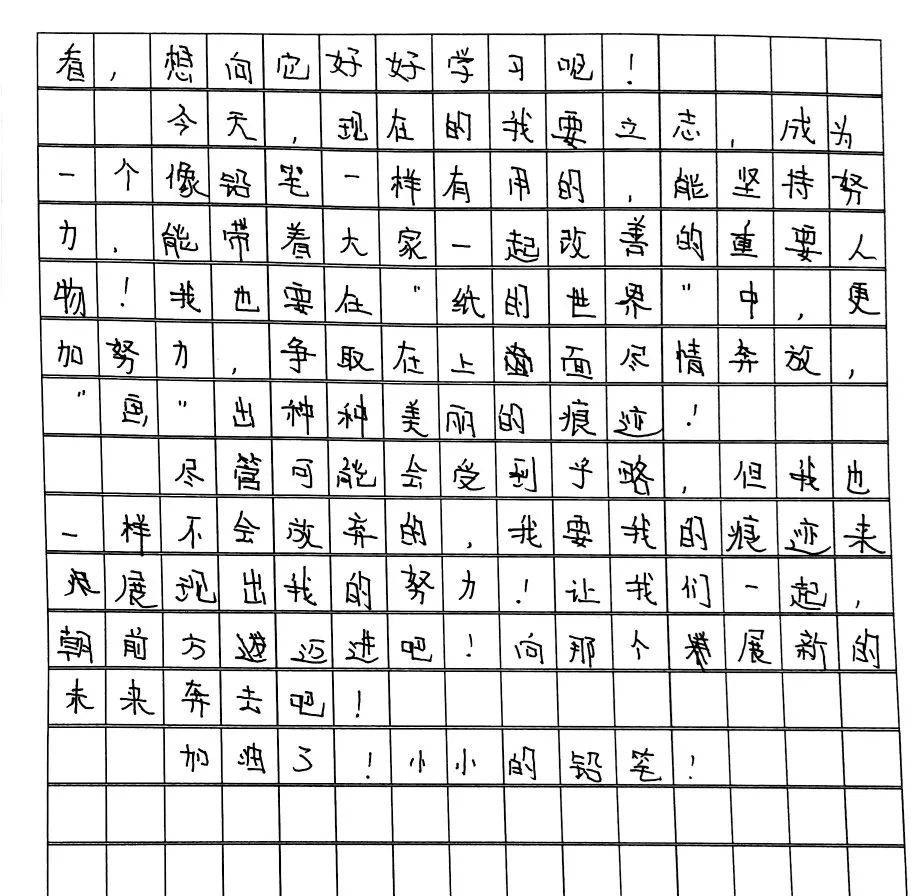 看，想向它好好学习呢！
今天，现在的我要立志，成为
一个像铅笔一样有用的，能坚持努
力，能带着大家一起改善的重要人
物！我也要在“纸的世界”中，更
加努力，争取在上面尽情奔放，
“画”出种种美丽的痕迹！
尽管可能会受到乎略，但我也
一样不会放弃的，我要我的痕迹来
展现出我的努力！让我们一起，
朝前方迈进吧！向那个展新的
未来奔去吧！
加油了！小小的铅笔！